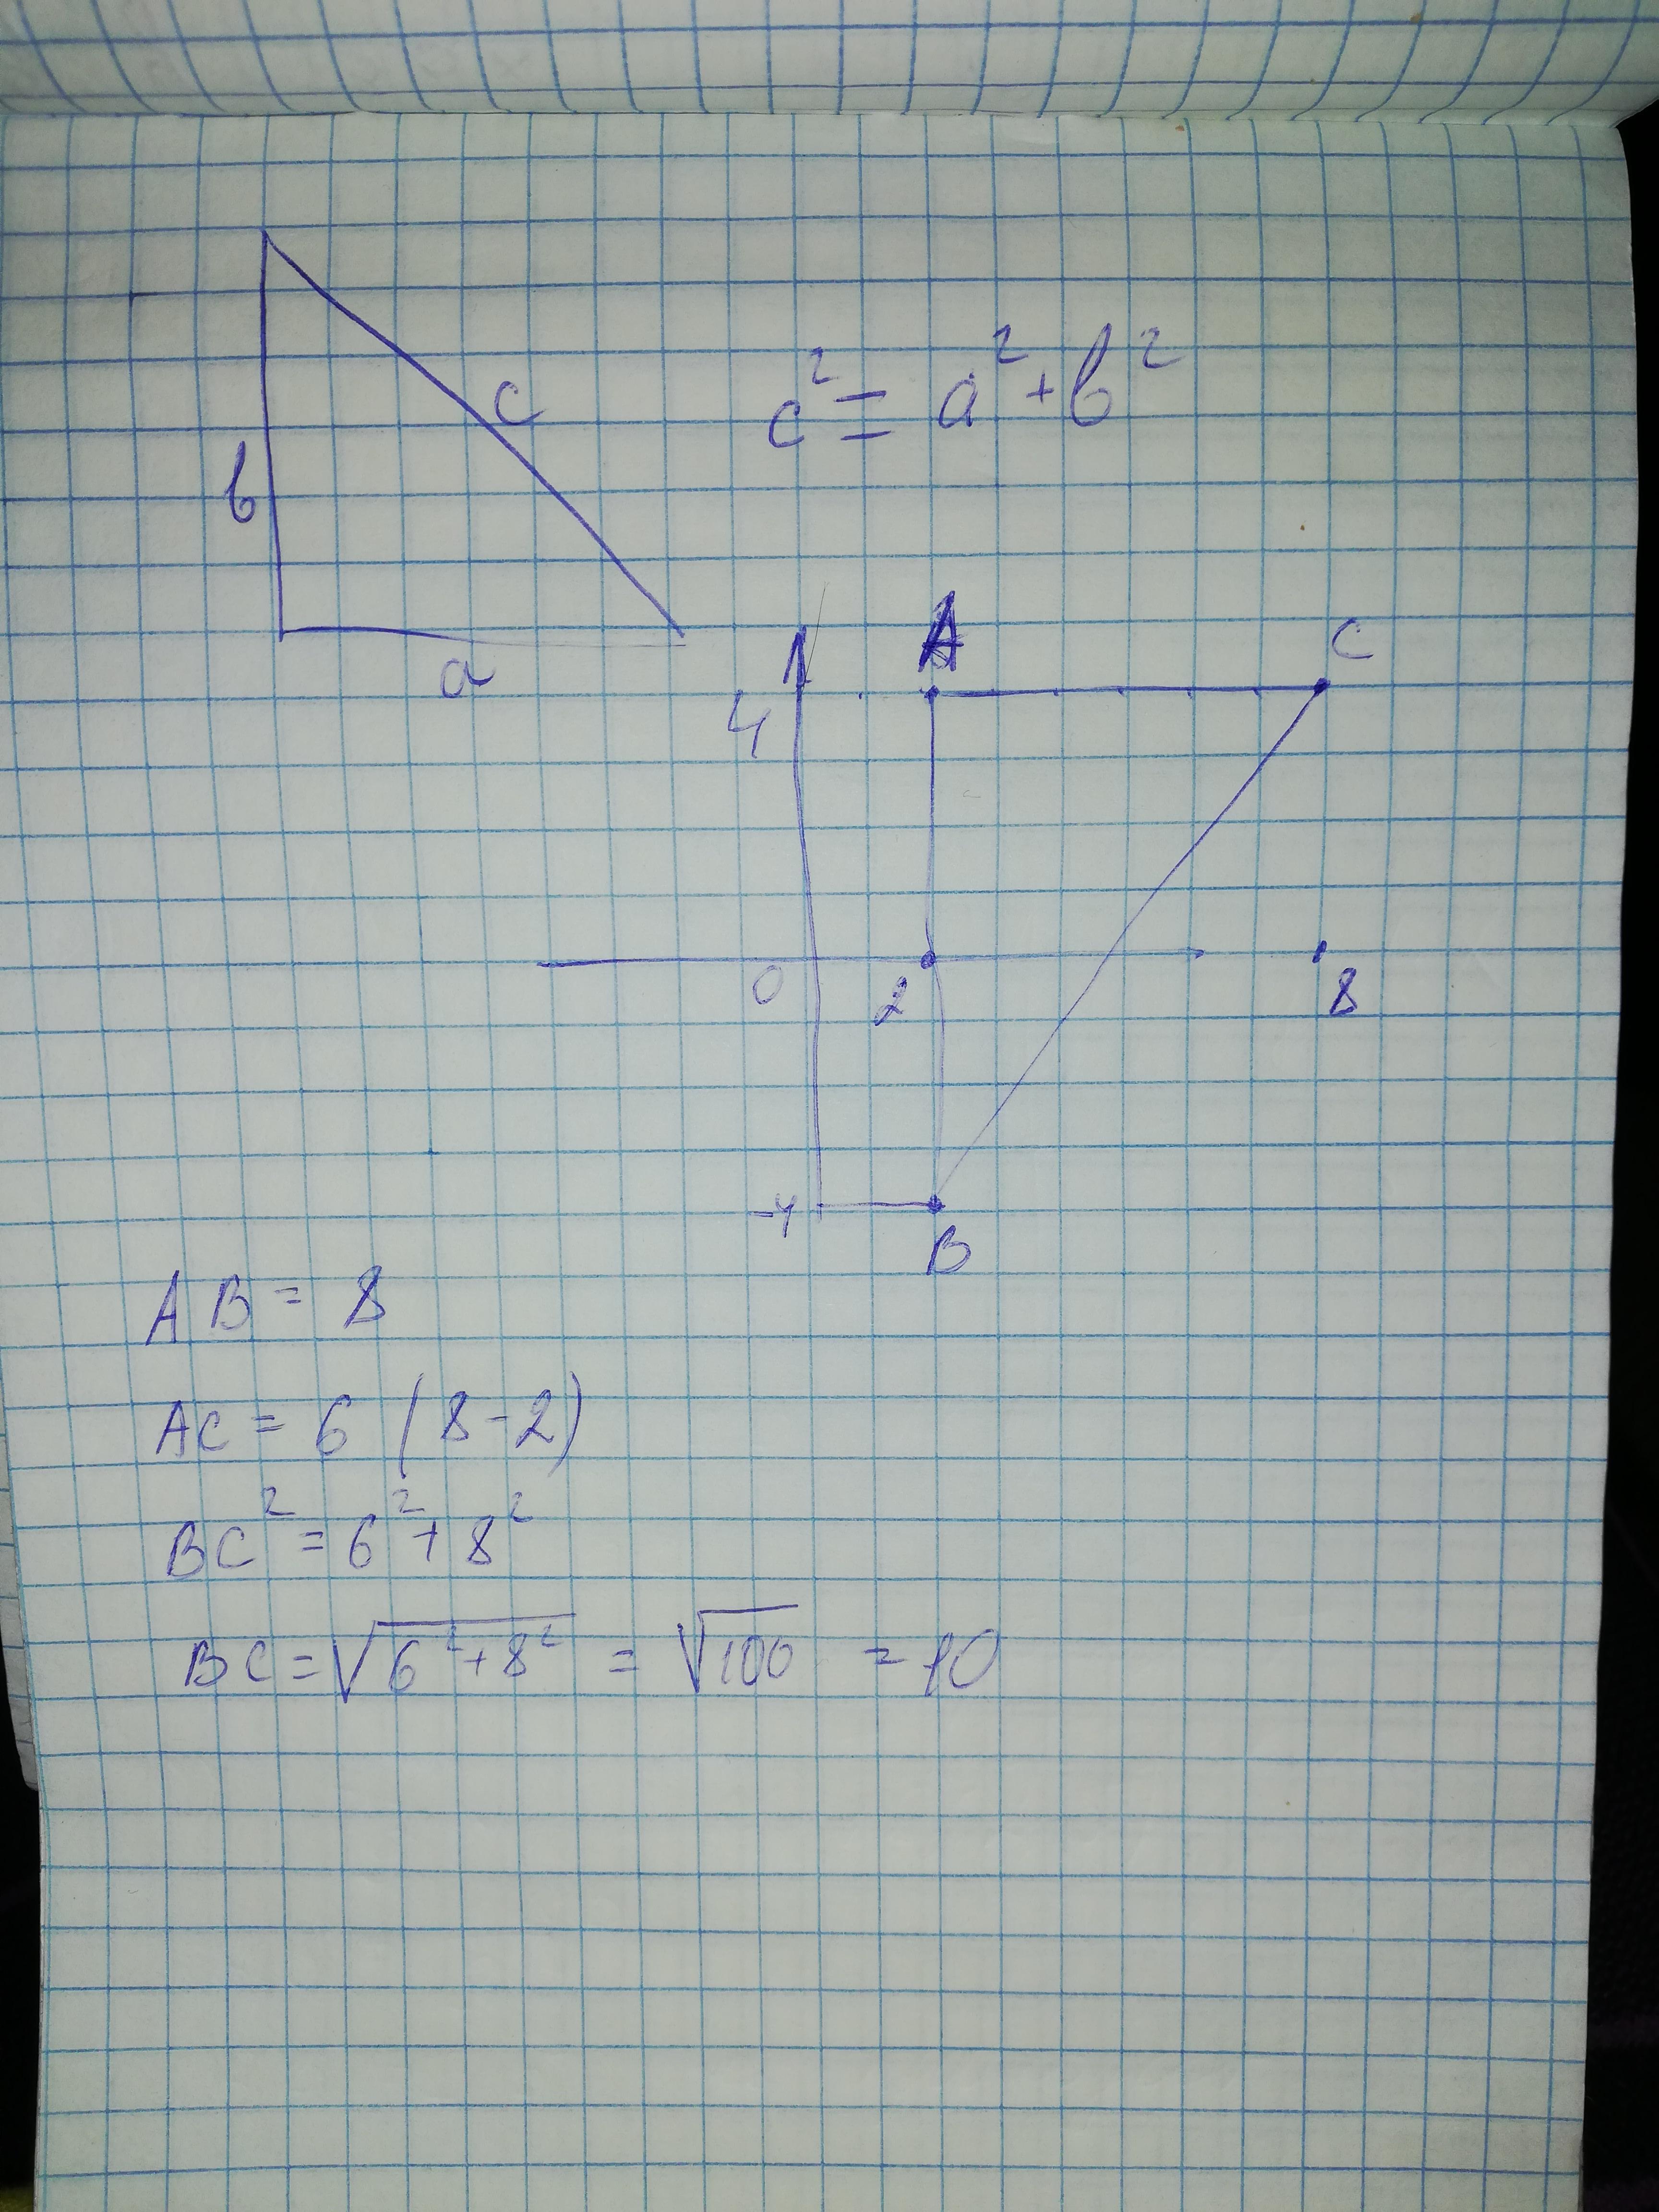 c
c² = a² + b²
b
a
A
C
4
0
2
8
-4
B
AB = 8
AC = 6 (8-2)
BC² = 6² + 8²
BC = √6²+8² = √100 = 10